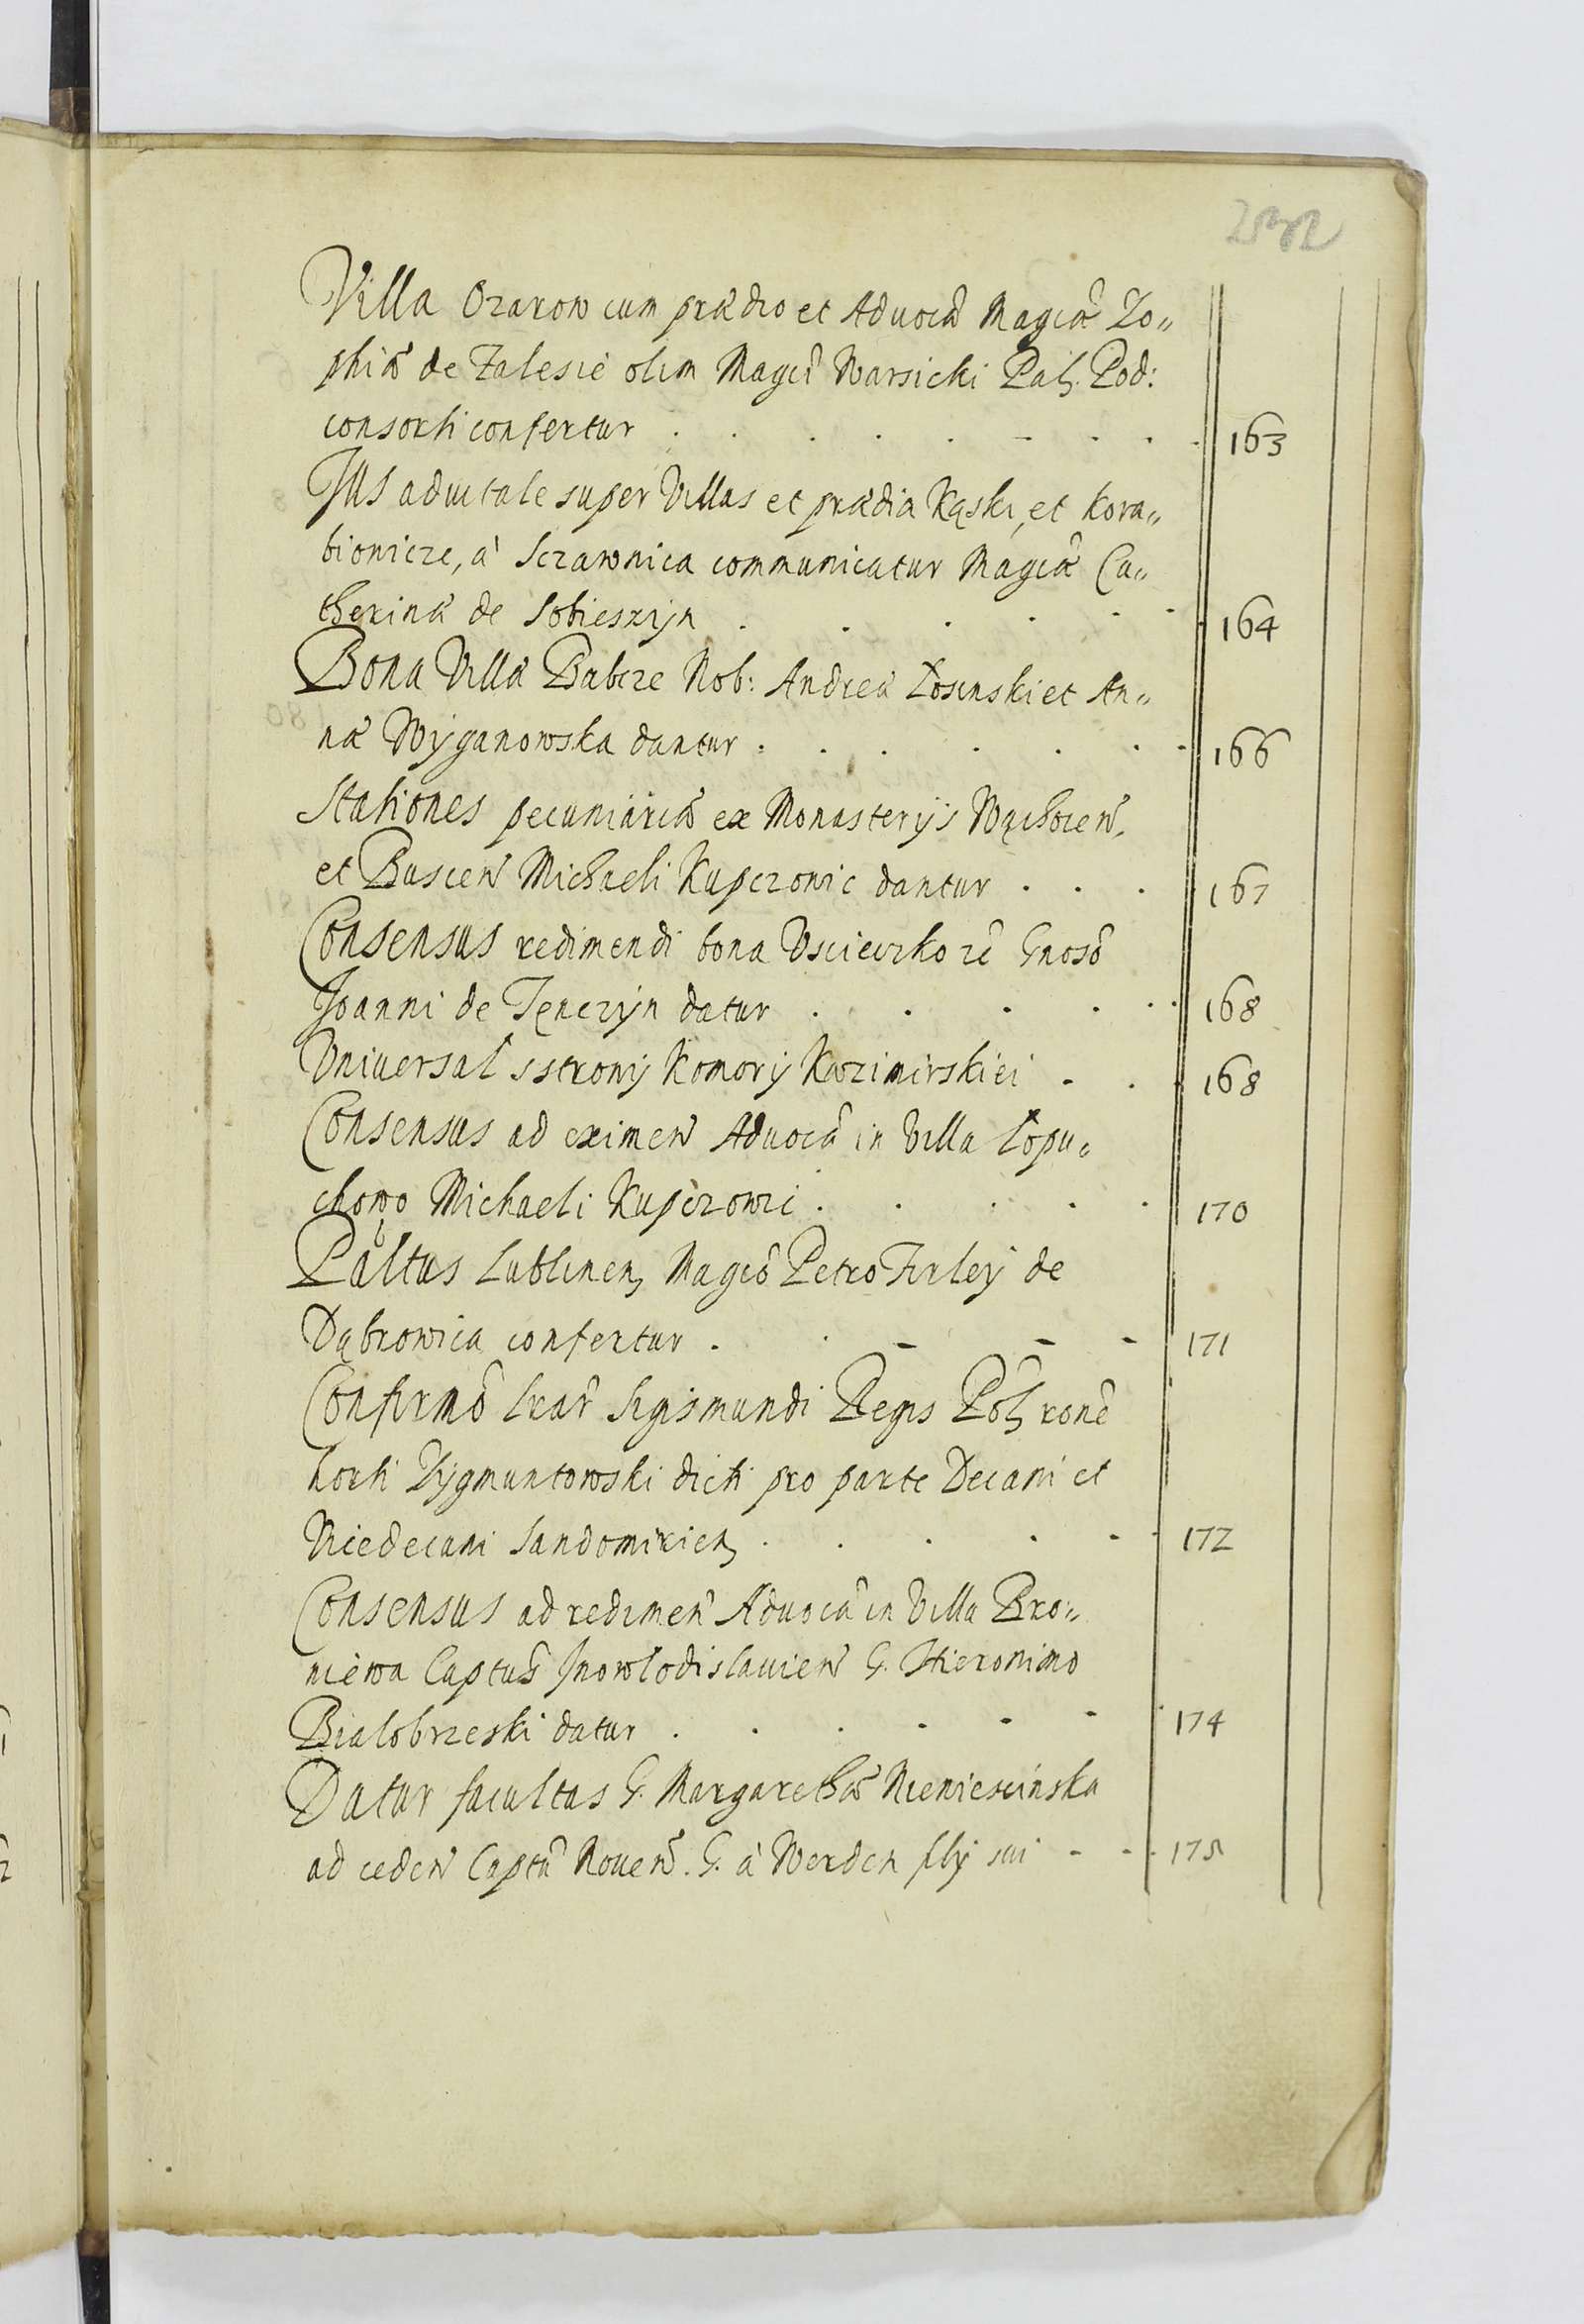 Villa Ozarow cum prædio et Advocã Magcæ Zo„
phiæ de Zalesie olim Magci Warsicki Pal. Pod:
consorti confertur . . . . . . . . . 163
Jus advitale super Villas et prædia Kąski, et Kora„
biowicze, à Sczawnica communicatur Magcæ Ca„
therinæ de Sobieszyn . . . . . . 164
Bona Villæ Babcze Nob: Andreæ Łosinski et An„
næ Wyganowska dantur . . . . . . . 166
Stationes pecuniariæ ex Monasterijs Wąchocen.
et Buscen Michaeli Kupczowic dantur . . . 167
Consensus redimendi bona Uscieczko rẽ Gnosõ
Joanni de Tęnczyn datur . . . . . . 168
Universal sstrony Komory Kazimirskiei . . . 168
Consensus ad eximen Advocã in Villa Łopu„
chowo Michaeli Kupczowic . . . . . 170
Pałtus Lublinen Magcõ Petro Firley de
Dąbrowica confertur . . . . . 171
Confirmõ Lrar Sigismundi Regis Pol ronẽ
horti Zygmuntowski dicti pro parte Decani et
Vicedecani Sandomirien . . . . . . 172
Consensus ad redimen Advocã in Villa Bro„
niewa Captus Jnowłodislauien G. Hieronimo
Białobrzeski datur . . . . . . . 174
Datur facultas G. Margarethæ Niemiescinska
ad ceden Captũ Noven. G. à Werden flij sui . . . 175